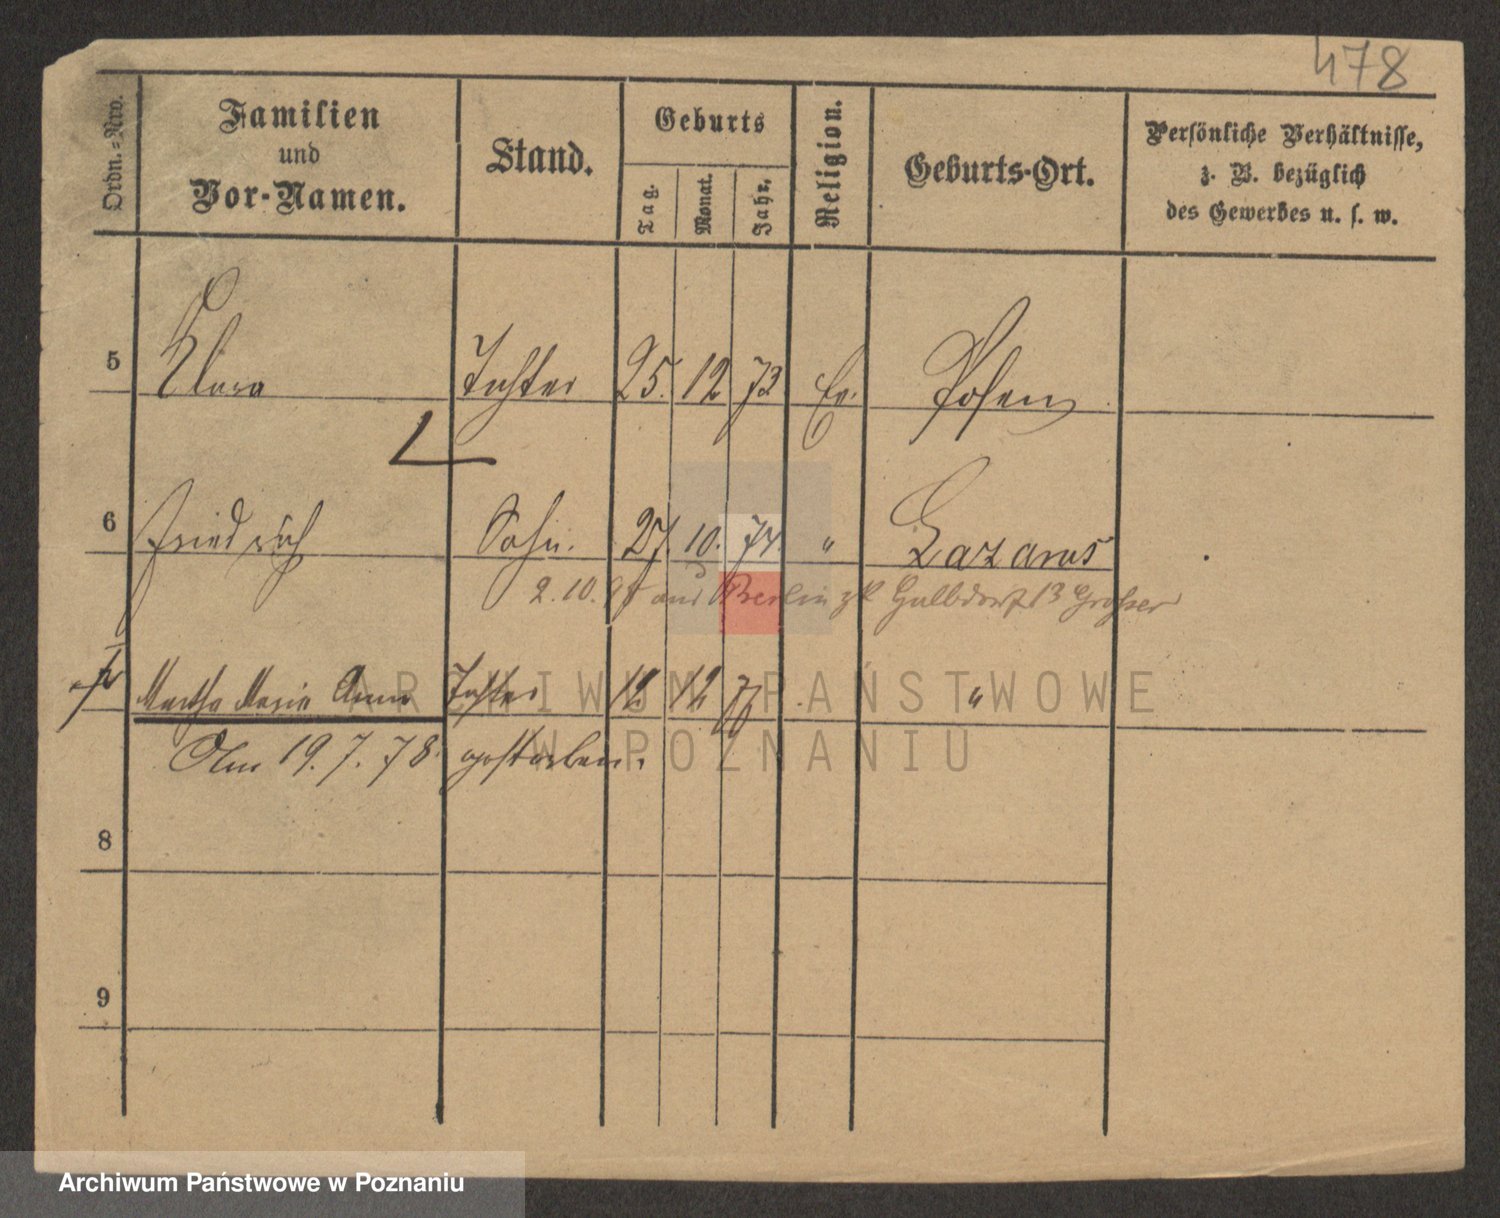 478
Ordn.-Nro.
Familien
und
Vor-Namen.
Stand.
Geburts
Tag.
Monat.
Jahr.
Religion.
Geburts-Ort.
Persönliche Verhältnisse,
z. B. bezüglich
des Gewerbes u. s. w.
5 Clara Tochter 25. 12 73 Ev. Posen
6 Friedrich Sohn. 27. 10. 74. " Lazarus
2. 10. 95 aus Berlin zk 13 Grosser
Martha Marie Anna Tochter 12 12 77 "
Am 19. 7. 78 gestorben.
8
9
ARCHIWUM PAŃSTWOWE
W POZNANIU
Archiwum Państwowe w Poznaniu